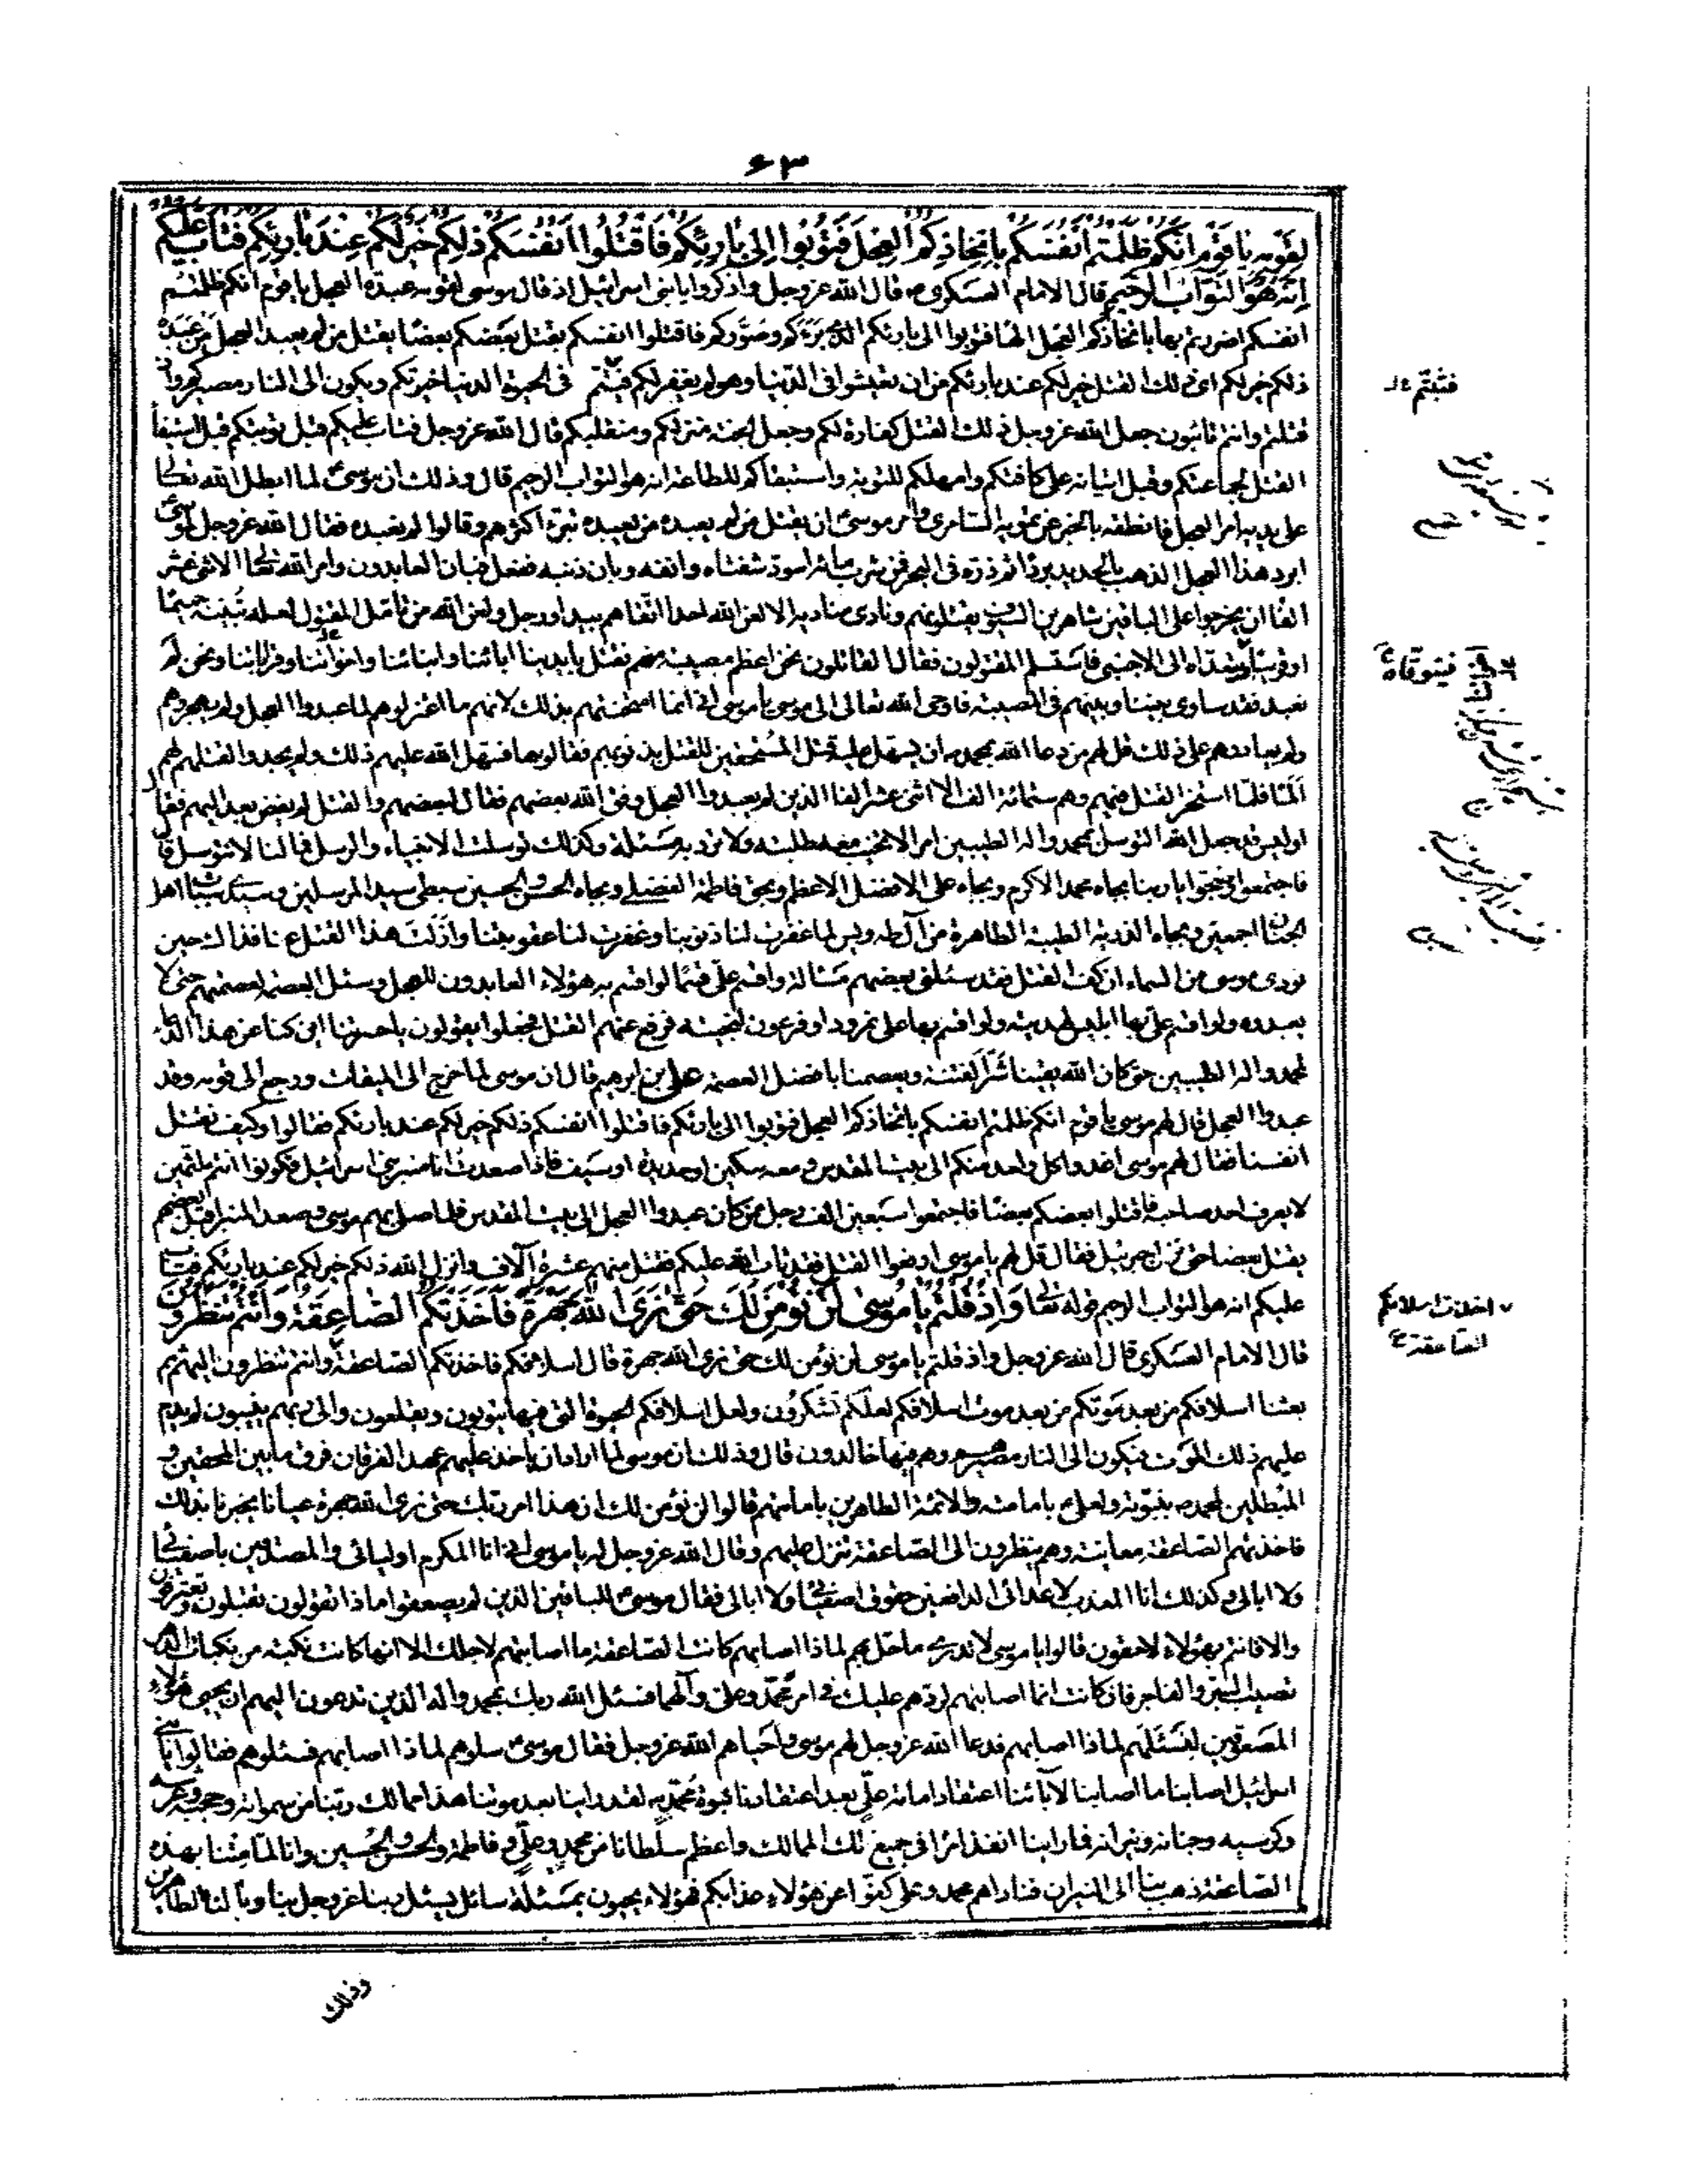 ٦٣
لقومه يا قوم انكم ظلمتم انفسكم باتخاذكم العجل فتوبوا الى بارئكم فاقتلوا انفسكم ذلكم خير لكم عند بارئكم فتاب عليكم
انه هو التواب الرحيم قال الامام العسكرى ع قال الله عز وجل واذكروا يا بنى اسرائيل اذ قال موسى لقومه عبدة العجل يا قوم انكم ظلمتم
انفسكم اضررتم بها باتخاذكم العجل الها فتوبوا الى بارئكم الذى برءكم وصوركم فاقتلوا انفسكم بقتل بعضكم بعضا يقتل من لم يعبد العجل من عبده
ذلكم خير لكم اى ذلك القتل خير لكم عند بارئكم من ان تعيشوا فى الدنيا وهو لم يغفر لكم فيتم فى الحيوة الدنيا خيرتكم ويكون الى النار مصيركم واذا
قتلتم وانتم تائبون جعل الله عز وجل ذلك القتل كفارة لكم وجعل الجنة منزلكم ومنقلبكم قال الله عز وجل فتاب عليكم قبل توبتكم قبل استيفاء
القتل لجماعتكم وقبل اتيانه على كافتكم وامهلكم للتوبة واستبقاكم للطاعة انه هو التواب الرحيم قال وذلك ان موسى لما ابطل الله تعالى
على يديه امر العجل فانطقه بالخبر عن تمويه السامرى وامر موسى ان يقتل من لم يعبده من يعبده تبرء اكثرهم وقالوا لم نعبده فقال الله عز وجل لموسى
ابرد هذا العجل الذهب بالحديد بردا ثم ذره فى البحر فمن شرب مائه اسود شفتاه وانفه وبان ذنبه ففعل فبان العابدون وامر الله تعالى الاثنى عشر
الفا ان يخرجوا على الباقين شاهرين السيوف يقتلونهم ونادى مناديه الا لعن الله احدا اتقاهم بيد او رجل ولعن الله من تامل المقتول لعله تبينه حميما
او قريبا فيتعداه الى الاجنبى فاستسلم المقتولون فقال القاتلون نحن اعظم مصيبة منهم نقتل بايدينا ابائنا وابنائنا واخواننا وقراباتنا ونحن لم
نعبد فقد ساوى بيننا وبينهم فى المصيبة فاوحى الله تعالى الى موسى يا موسى انى انما امتحنتهم بذلك لانهم ما اعتزلوهم لما عبدوا العجل ولم يهجروهم
ولم يعادوهم على ذلك قل لهم من دعا الله بمحمد وآله ان يسهل عليه قتل المستحقين للقتل بذنوبهم فقالوها فسهل الله عليهم ذلك ولم يجدوا لقتلهم لهم
الما فلما استحر القتل فيهم وهم ستمائة الف الا اثنى عشر الفا الذين لم يعبدوا العجل وفق الله بعضهم فقال لبعضهم والقتل لم يفض بعد اليهم فقال
اوليس قد جعل الله التوسل بمحمد واله الطيبين امرا لا تخيب معه طلبة ولا ترد به مسئلة وكذلك توسلت الانبياء والرسل فما لنا لا نتوسل قال
فاجتمعوا وضجوا يا ربنا بجاه محمد الاكرم وبجاه على الافضل الاعظم وبحق فاطمة الفضلى وبجاه الحسن والحسين سبطى سيد المرسلين وسيدى شباب اهل
الجنان اجمعين وبجاه الذرية الطيبة الطاهرة من آل طه ويس لما غفرت لنا ذنوبنا وغفرت لنا عقوبتنا وازلت هذا القتل عنا فذلك حين
نودى موسى من السماء ان كف القتل فقد سئلنى بعضهم مسألة واقسم على قسما لو اقسم به هؤلاء العابدون للعجل وسئل العصمة لعصمتهم حتى لا
يعبدوه ولو اقسم على بها ابليس لهديته ولو اقسم بها على نمرود او فرعون لنجيته فرفع عنهم القتل فجعلوا يقولون يا حسرتنا اين كنا عن هذا الدعاء
بمحمد واله الطيبين حتى كان الله يقينا شر الفتنة ويعصمنا بافضل العصمة على بن ابرهيم قال ان موسى لما خرج الى الميقات ورجع الى قومه وقد
عبدوا العجل قال لهم موسى يا قوم انكم ظلمتم انفسكم باتخاذكم العجل فتوبوا الى بارئكم فاقتلوا انفسكم ذلكم خير لكم عند بارئكم فقالوا وكيف نقتل
انفسنا فقال لهم موسى اغدوا كل واحد منكم الى بيت المقدس ومعه سكين او حديدة او سيف فاذا صعدت انا منبر بنى اسرائيل فكونوا انتم ملثمين
لا يعرف احد صاحبه فاقتلوا بعضكم بعضا فاجتمعوا سبعين الف رجل ممن كان عبدوا العجل الى بيت المقدس فلما صلى بهم موسى وصعد المنبر اقبل بعضهم
يقتل بعضا حتى نزل جبرئيل فقال قل لهم يا موسى ارفعوا القتل فقد تاب الله عليكم فقتل منهم عشرة آلاف وانزل الله ذلكم خير لكم عند بارئكم فتاب
عليكم انه هو التواب الرحيم قوله تعالى واذ قلتم يا موسى لن نؤمن لك حتى نرى الله جهرة فاخذتكم الصاعقة وانتم تنظرون
قال الامام العسكرى قال الله عز وجل واذ قلتم يا موسى لن نؤمن لك حتى نرى الله جهرة قال اسلافكم فاخذتكم الصاعقة وانتم تنظرون اليهم ثم
بعثنا اسلافكم من بعد موتكم من بعد موت اسلافكم لعلكم تشكرون ولعل اسلافكم الحيوة التى فيها يتوبون ويقلعون والى ربهم ينيبون لم يدم
عليهم ذلك الموت فيكون الى النار مصيرهم وهم فيها خالدون قال وذلك ان موسى لما اراد ان ياخذ عليهم عهد الفرقان فرق ما بين المحقين و
المبطلين لمحمد ص بنبوته ولعلى ع بامامته وللائمة الطاهرين بامامتهم قالوا لن نؤمن لك ان هذا امر ربك حتى نرى الله جهرة عيانا يخبرنا بذلك
فاخذتهم الصاعقة معاينة وهم ينظرون الى الصاعقة تنزل عليهم وقال الله عز وجل له يا موسى انى انا المكرم اوليائى والمصدقين باصفيائى
ولا ابالى وكذلك انا المعذب لاعدائى الدافعين حقوق اصفيائى ولا ابالى فقال موسى للباقين الذين لم يصعقوا ماذا تقولون تقبلون وتعترفون
والا فانتم بهؤلاء لاحقون قالوا يا موسى لا ندرى ما حل بهم لماذا اصابهم كانت الصاعقة ما اصابتهم لاجلك الا انها كانت نكبة من نكبات الدهر
تصيب البر والفاجر فان كانت انما اصابتهم لردهم عليك فى امر محمد وعلى وآلهما فسئل الله ربك بمحمد واله الذين تدعون اليهم ان يحيى هؤلاء
المصعوقين لنسئلهم لماذا اصابهم فدعا الله عز وجل لهم موسى فاحياهم الله عز وجل فقال موسى سلوهم لماذا اصابهم فسئلوهم فقالوا يا بنى
اسرائيل اصابنا ما اصابنا لآبائنا اعتقاد امامة على بعد اعتقادنا نبوة محمد لقد راينا بعد موتنا هذا ممالك ربنا من سمواته وحجبه وعرشه
وكرسيه وجنانه ونيرانه فما راينا انفذ امرا فى جميع تلك الممالك واعظم سلطانا من محمد وعلى وفاطمة والحسن والحسين وانا لما متنا بهذه
الصاعقة ذهب بنا الى النيران فناداهم محمد وعلى كفوا عن هؤلاء عذابكم فهؤلاء يحيون بمسئلة سائل يسئل ربنا عز وجل بنا وبآلنا الطاهرين
وذلك
فيتوقاه
اخذت اسلافكم
الصاعقة